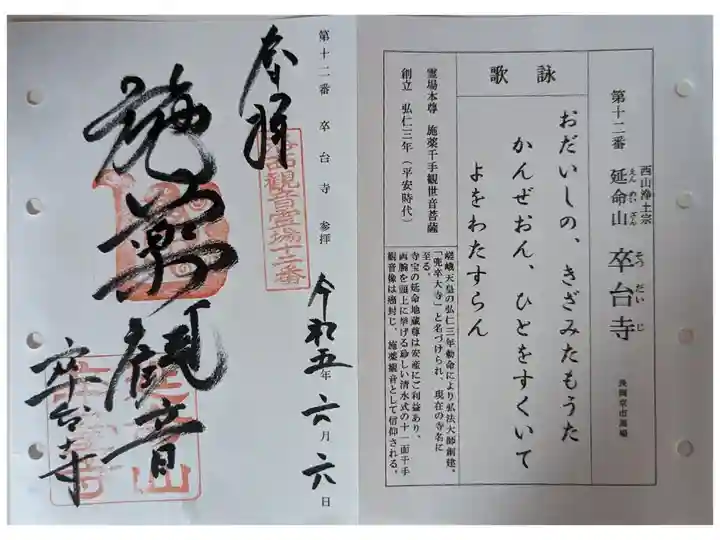 西山浄土宗
第十二番 延命山 卒台寺
えんめいざん そつだいじ
長岡京市馬場
詠歌
おだいしの、きざみたもうた
かんぜおん、ひとをすくいて
よをわたすらん
霊場本尊 施薬千手観世音菩薩
創立 弘仁三年(平安時代)
嵯峨天皇の弘仁三年勅命により弘法大師創建。
「兜卒大寺」と名づけられ、現在の寺名に
至る。
寺宝の延命地蔵尊は安産にご利益あり、
両腕を頭上に挙げる珍しい清水式の十一面千手
観音像は癌封じ、施薬観音として信仰される。
第十二番 卒台寺 参拝
奉拝
洛西観音霊場十二番
令和五年六月六日
施薬観音
卒台寺